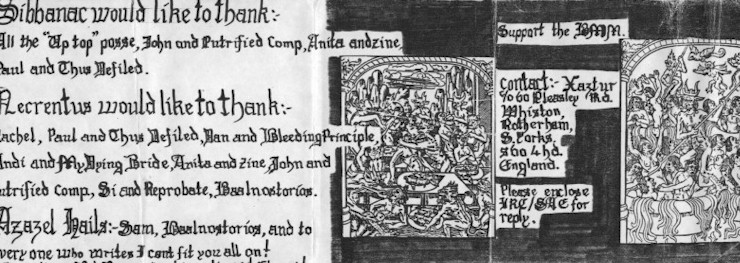 Sibbanac would like to thank:-
All the "Up top" posse, John and Putrified Comp, Anita and zine,
Paul and Thus Defiled.
Necrentus would like to thank:-
Rachel, Paul and Thus Defiled, Dan and Bleeding Principle,
Andi and My Dying Bride, Anita and zine, John and
Putrified Comp, Si and Reprobate, Baalnostorios.
Azazel Hails:- Sam, Baalnostorios, and to
every one who writes I cant fit you all on!
Support the
Contact:- Xaztur
%60 Pleasley Rd.
Whiston,
Rotherham,
S.Yorks.
S60 4hd.
England.
Please enclose
IRC/SAE for
reply.